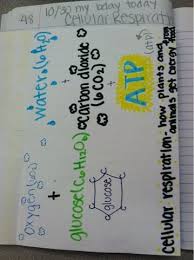 48
10/30 my today today
Cellular Respirati
oxygen(6O₂)
+
glucose(C₆H₁₂O₆)
glucose
water(6H₂O)
+
carbon dioxide
(6CO₂)
+
ATP
(atp)
cellular respiration: how plants and
animals get energy from